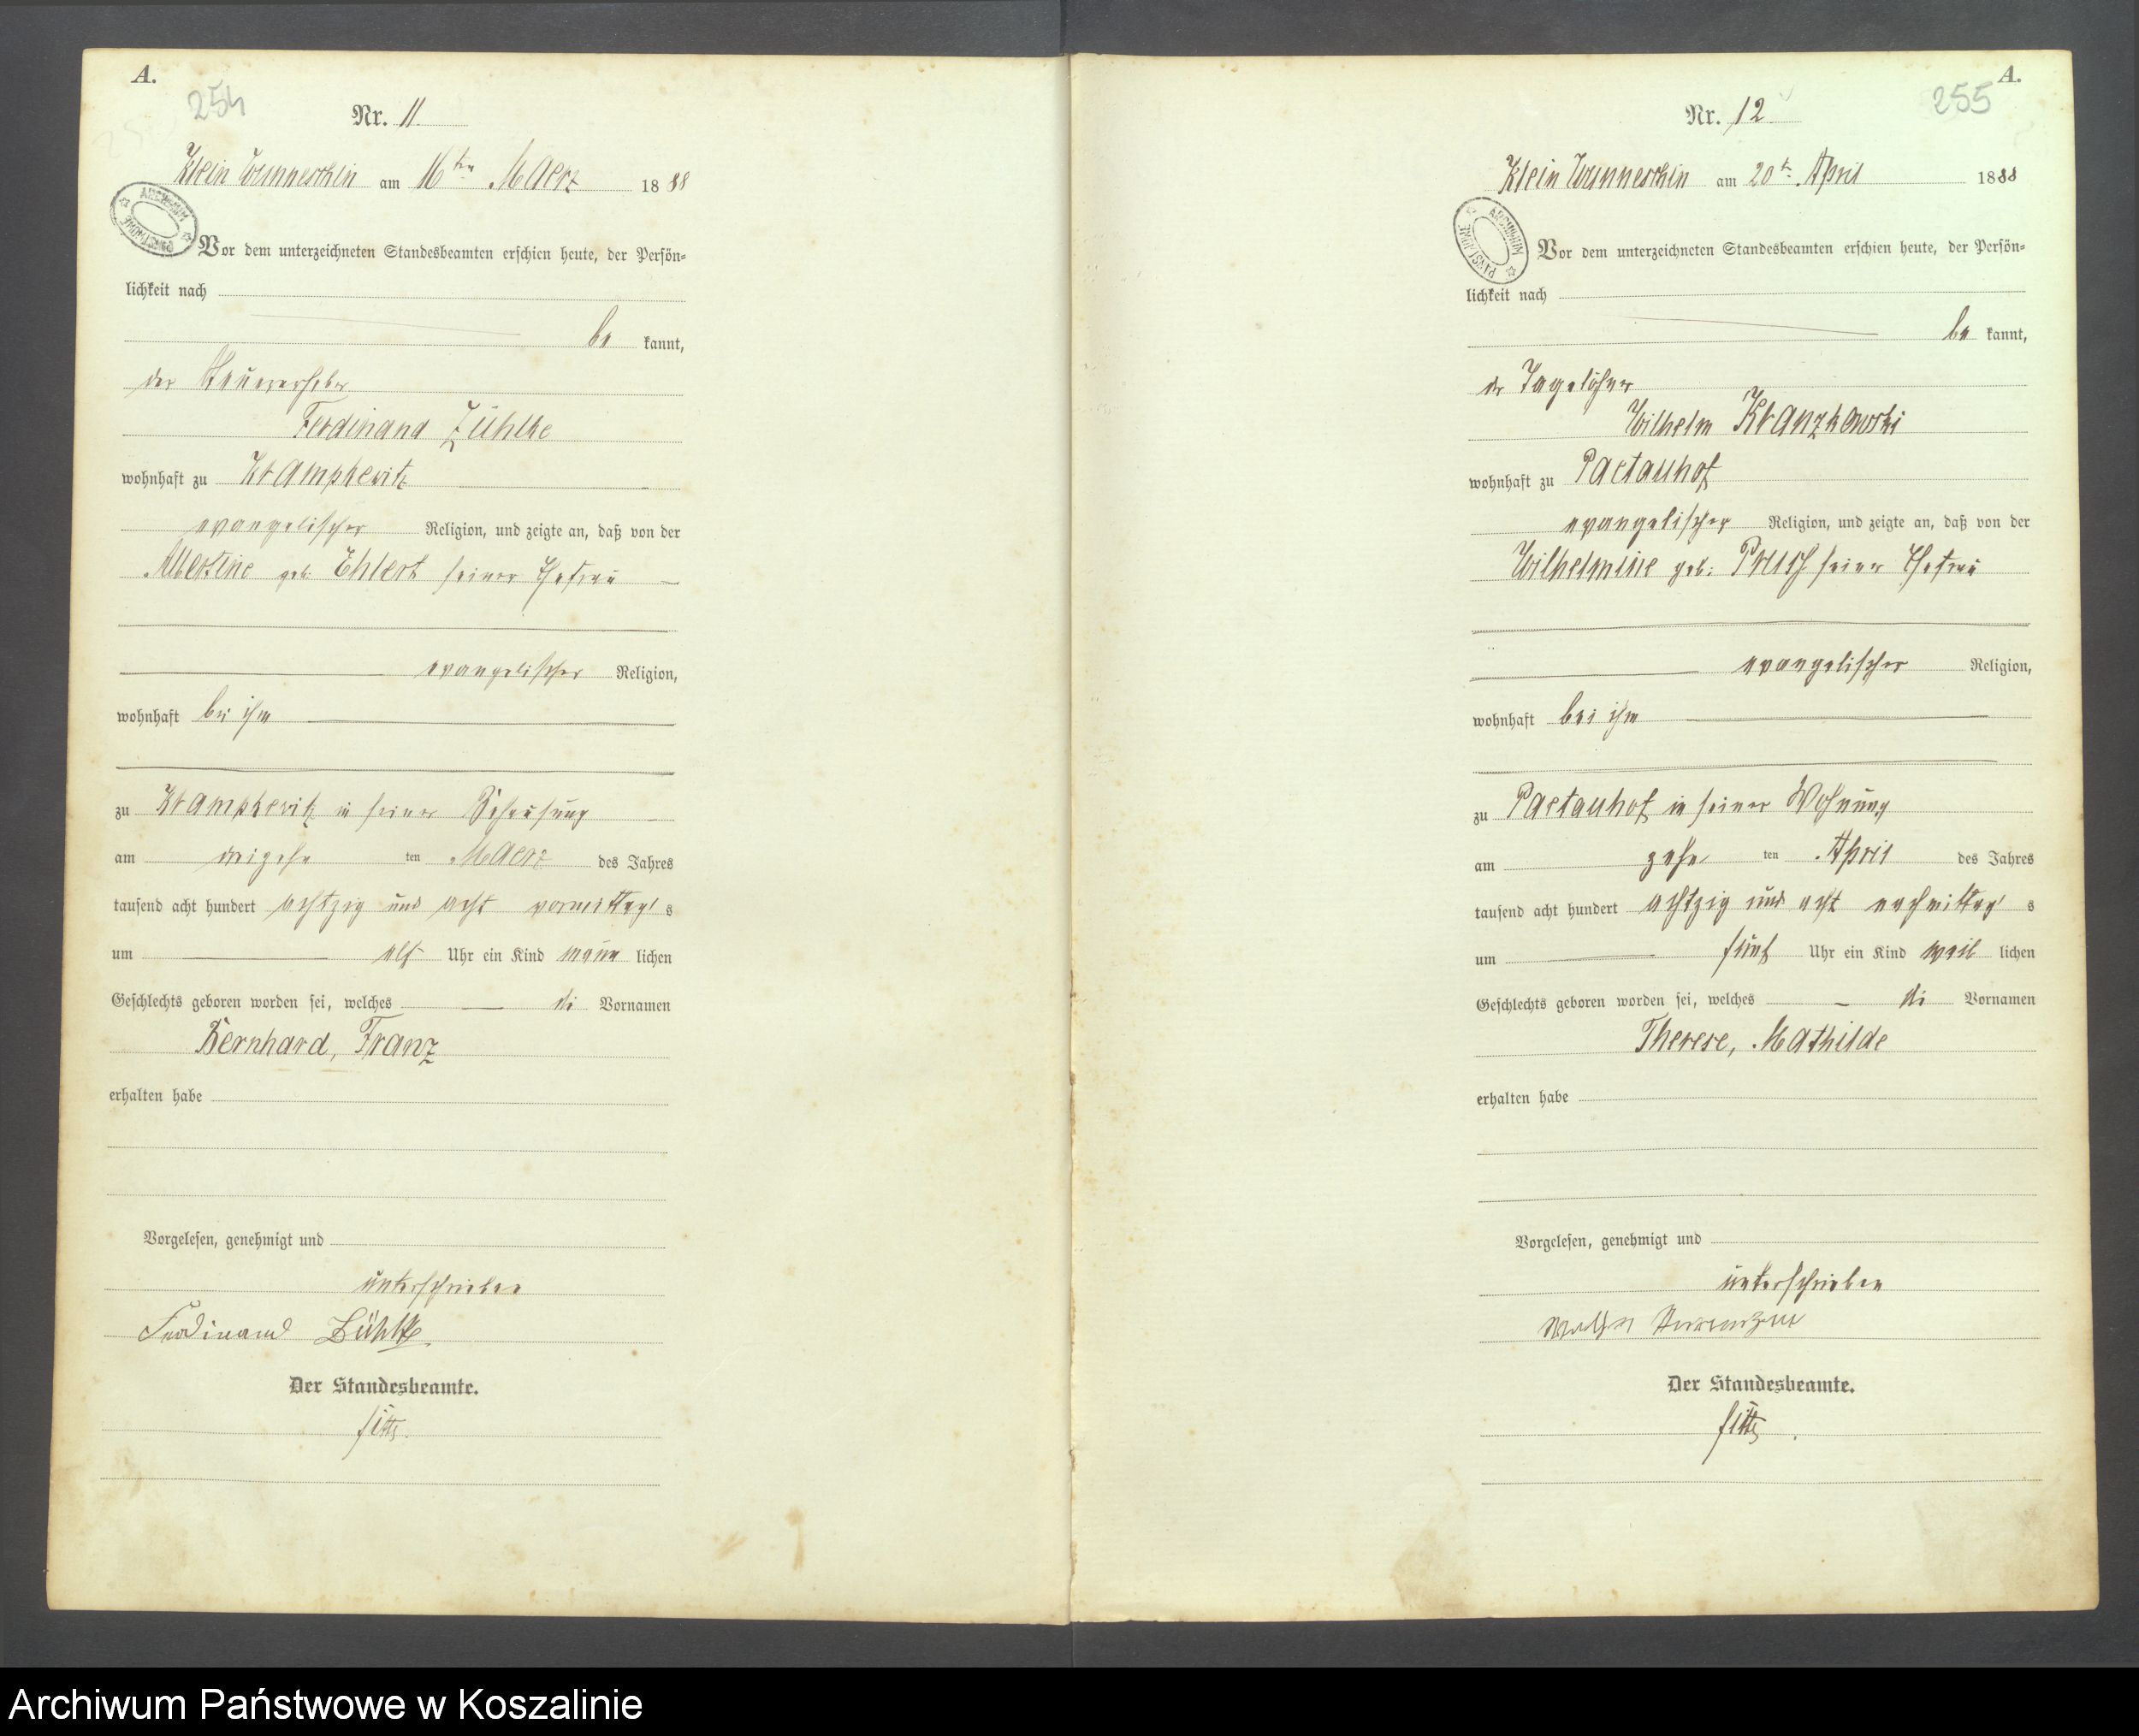 A.
254
Nr. 11
Klein Wunneschin am 16ten Maerz 1888
ARCHIWUM PAŃSTWOWE
Vor dem unterzeichneten Standesbeamten erschien heute, der Persön-
lichkeit nach
be kannt,
der Steuererheber
Ferdinand Zühlke
wohnhaft zu Krampkewitz
evangelischer Religion, und zeigte an, daß von der
Albertine geb. Ehlert seiner Ehefrau
evangelischer Religion,
wohnhaft bei ihm
zu Krampkewitz in seiner Behausung
am dreizehn ten Maerz des Jahres
tausend acht hundert achtzig und acht vormittag s
um elf Uhr ein Kind männ lichen
Geschlechts geboren worden sei, welches die Vornamen
Bernhard, Franz
erhalten habe
Vorgelesen, genehmigt und
unterschrieben
Ferdinand Zühlke
Der Standesbeamte.
A.
255
Nr. 12
Klein Wunneschin am 20t. April 1888
ARCHIWUM PAŃSTWOWE
Vor dem unterzeichneten Standesbeamten erschien heute, der Persön-
lichkeit nach
be kannt,
der Tagelöhner
Wilhelm Kranzkowski
wohnhaft zu Paetauhof
evangelischer Religion, und zeigte an, daß von der
Wilhelmine geb: seiner Ehefrau
evangelischer Religion,
wohnhaft bei ihm
zu Paetauhof in seiner Wohnung
am zehn ten April des Jahres
tausend acht hundert achtzig und acht nachmittag s
um fünf Uhr ein Kind weib lichen
Geschlechts geboren worden sei, welches die Vornamen
Therese, Mathilde
erhalten habe
Vorgelesen, genehmigt und
unterschrieben
Der Standesbeamte.
Archiwum Państwowe w Koszalinie